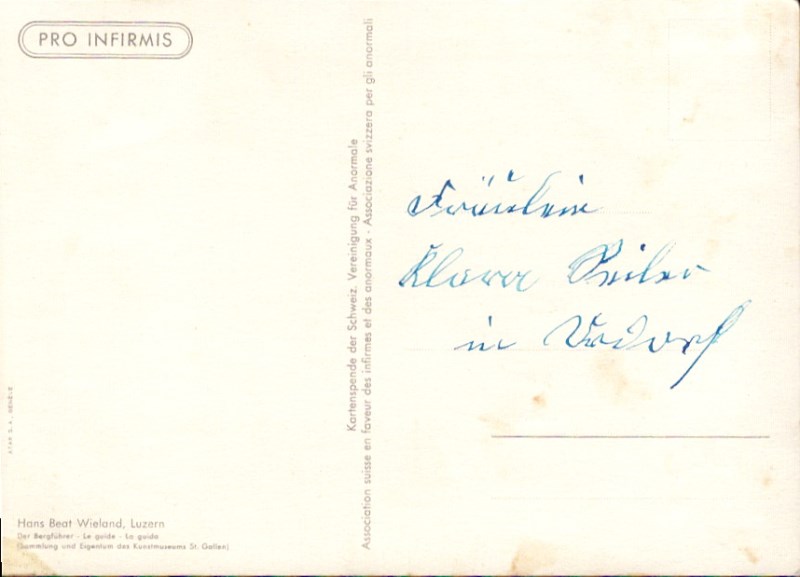 PRO INFIRMIS
Kartenspende der Schweiz. Vereinigung für Anormale
Association suisse en faveur des infirmes et des anormaux - Associazione svizzera per gli anormali
Fräulein
Klara Seiler
in Urdorf
Hans Beat Wieland, Luzern
Der Bergführer - Le guide - La guida
(Sammlung und Eigentum des Kunstmuseums St. Gallen)